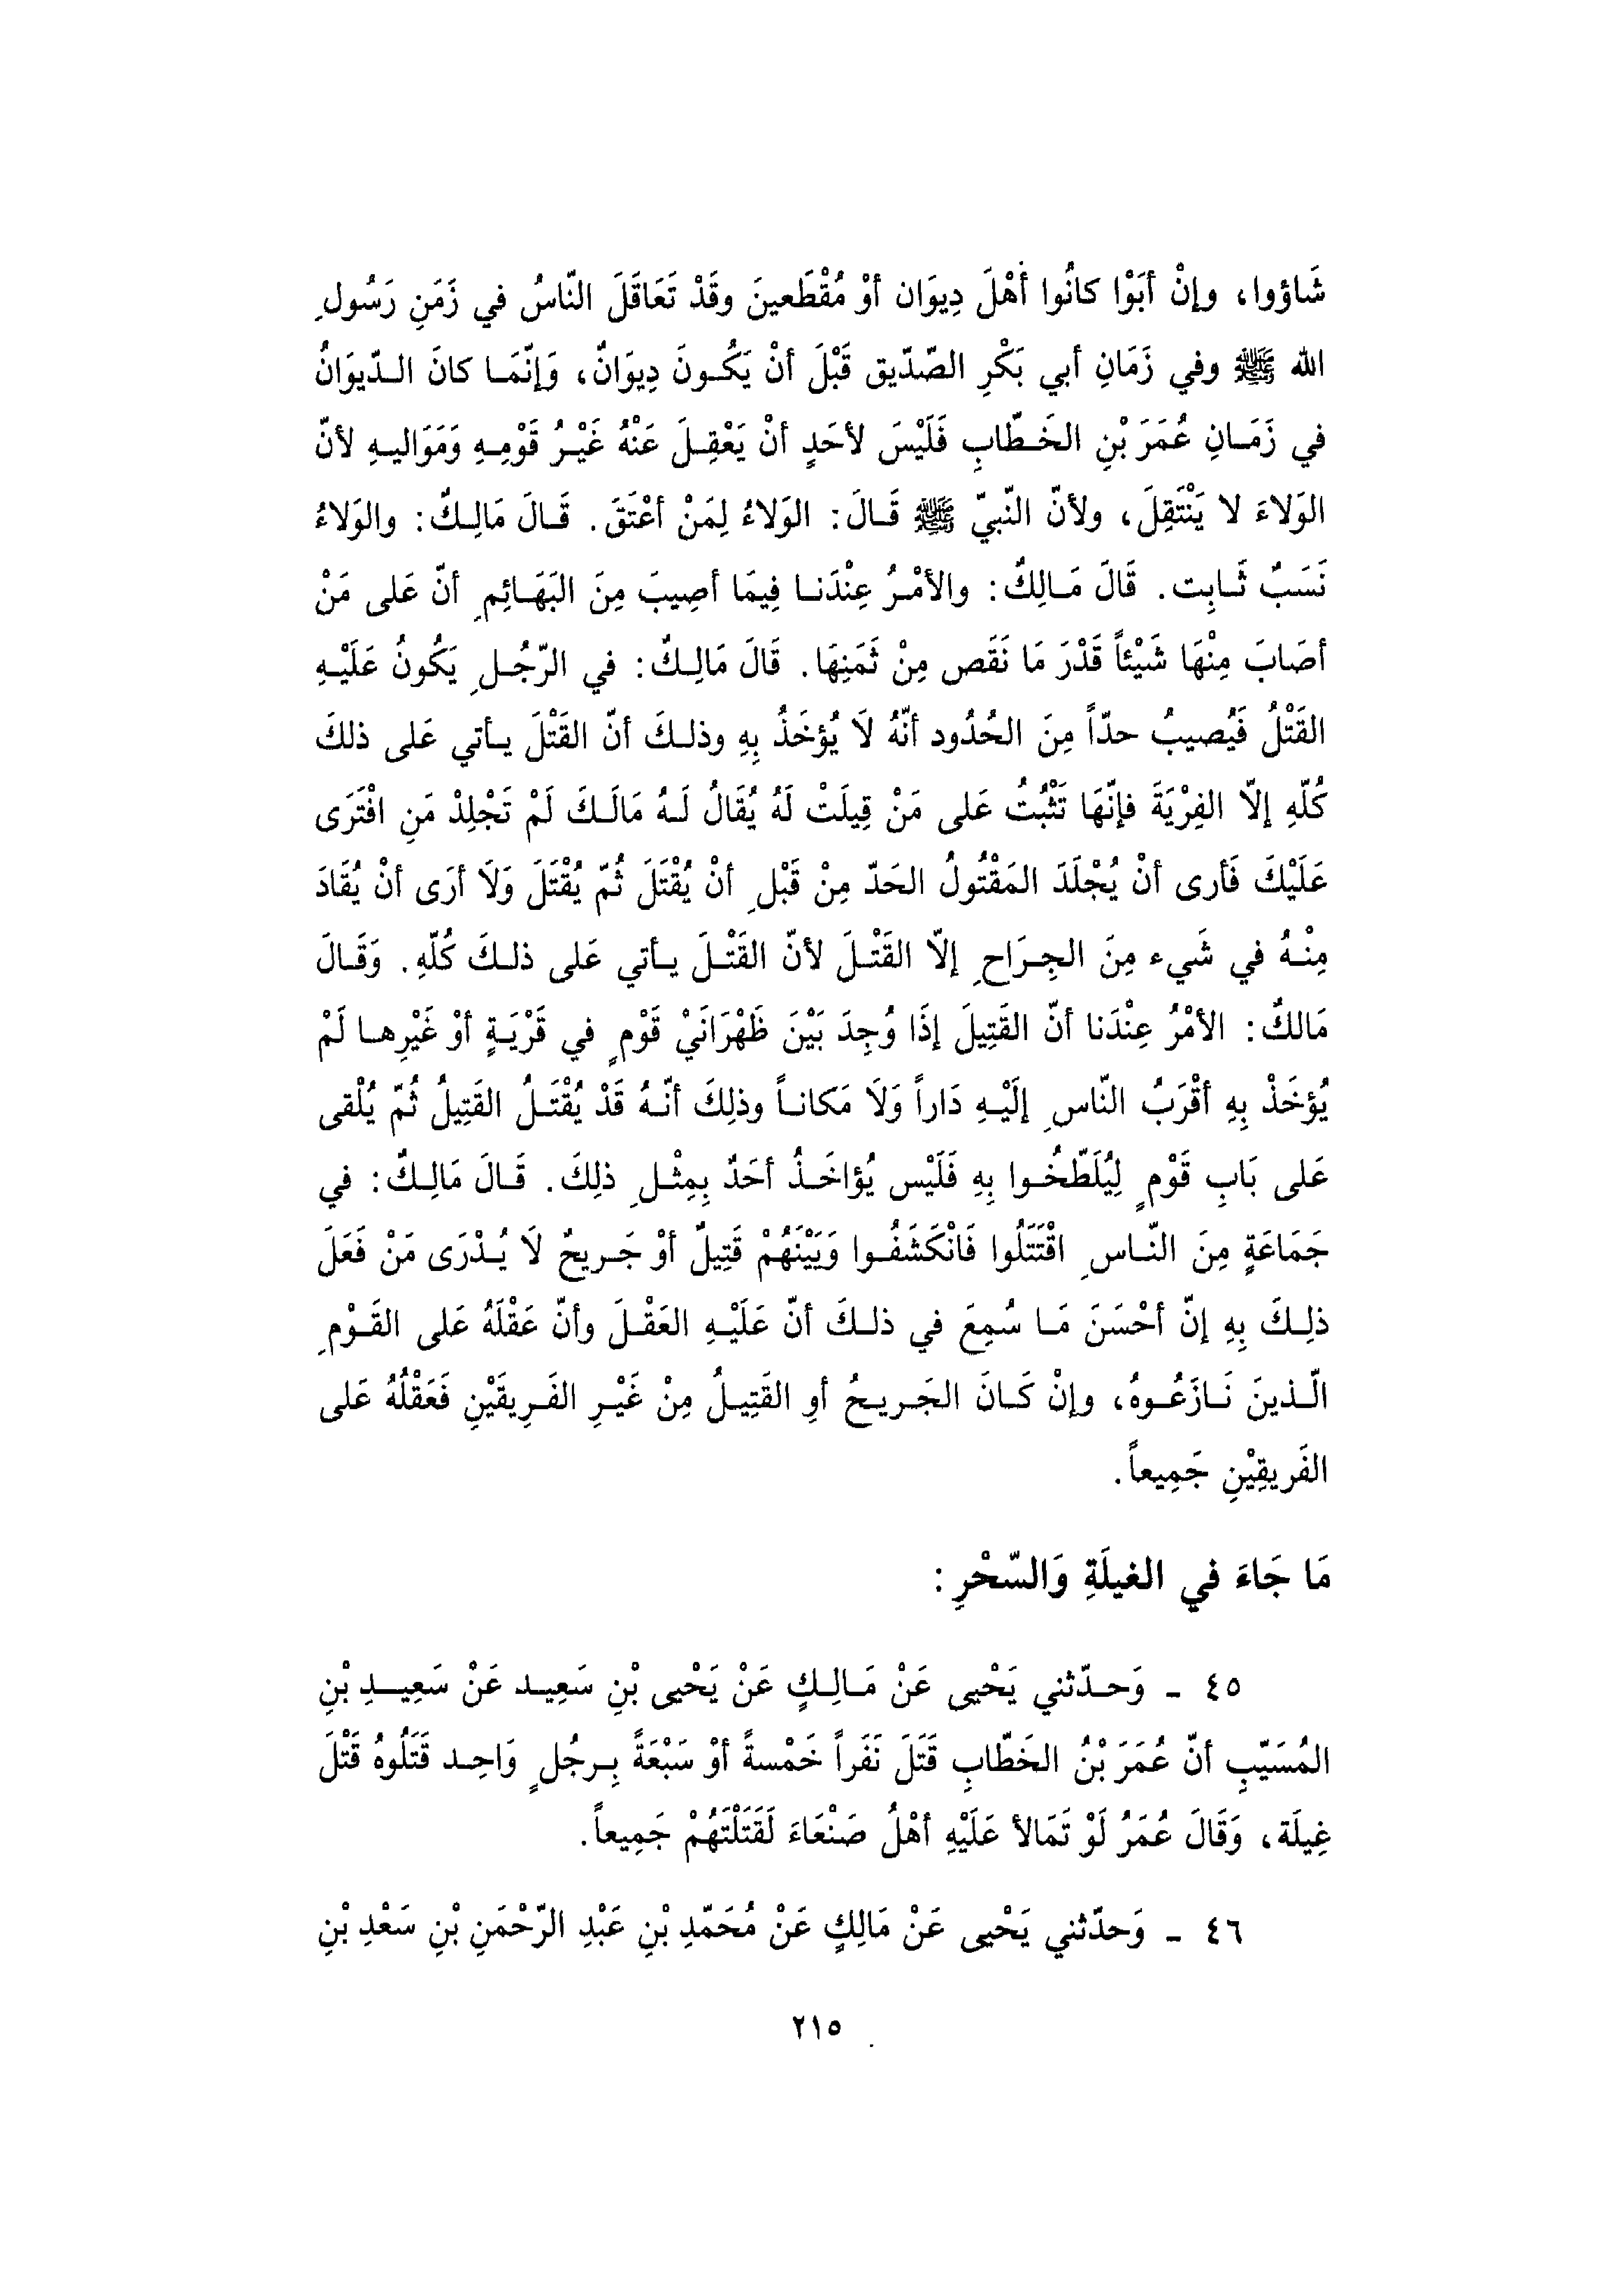 شَاؤوا، وإنْ أبَوْا كانُوا أهْلَ دِيوَان أوْ مُقْطَعينَ وقَدْ تَعَاقَلَ النّاسُ في زَمَنِ رَسُولِ
الله ﷺ وفي زَمَانِ أبي بَكْرِ الصّدّيق قَبْلَ أنْ يَكُونَ دِيوَانٌ، وَإنّمَا كانَ الدّيوَانُ
في زَمَانِ عُمَرَ بْنِ الخَطّابِ فَلَيْسَ لأحَدٍ أنْ يَعْقِلَ عَنْهُ غَيْرُ قَوْمِهِ وَمَوَاليهِ لأنّ
الوَلاءَ لا يَنْتَقِلَ، ولأنّ النّبيّ ﷺ قَالَ: الوَلاءُ لِمَنْ أعْتَقَ. قَالَ مَالِكٌ: والوَلاءُ
نَسَبٌ ثَابِت. قَالَ مَالِكٌ: والأمْرُ عِنْدَنا فِيمَا أصِيبَ مِنَ البَهَائِمِ أنّ عَلى مَنْ
أصَابَ مِنْهَا شَيْئاً قَدْرَ مَا نَقَص مِنْ ثَمَنِهَا. قَالَ مَالِكٌ: في الرّجُلِ يَكُونُ عَلَيْهِ
القَتْلُ فَيُصيبُ حدّاً مِنَ الحُدُود أنّهُ لَا يُؤخَذُ بِهِ وذلكَ أنّ القَتْلَ يأتي عَلى ذلكَ
كُلّهِ إلاّ الفِرْيَةَ فإنّهَا تَثْبُتُ عَلى مَنْ قِيلَتْ لَهُ يُقَالُ لَهُ مَالَكَ لَمْ تَجْلِدْ مَنِ افْتَرَى
عَلَيْكَ فَأرى أنْ يُجْلَدَ المَقْتُولُ الحَدّ مِنْ قَبْلِ أنْ يُقْتَلَ ثُمّ يُقْتَلَ وَلَا أرَى أنْ يُقَادَ
مِنْهُ في شَيء مِنَ الجِرَاحِ إلاّ القَتْلَ لأنّ القَتْلَ يأتي عَلى ذلكَ كُلّهِ. وَقَالَ
مَالكٌ: الأمْرُ عِنْدَنا أنّ القَتِيلَ إذَا وُجِدَ بَيْنَ ظَهْرَانَيْ قَوْمٍ في قَرْيَةٍ أوْ غَيْرِها لَمْ
يُؤخَذْ بِهِ أقْرَبُ النّاسِ إلَيْهِ دَاراً وَلَا مَكاناً وذلِكَ أنّهُ قَدْ يُقْتَلُ القَتِيلُ ثُمّ يُلْقى
عَلى بَابِ قَوْمٍ لِيُلَطّخُوا بِهِ فَلَيْس يُؤاخَذُ أحَدٌ بِمِثْلِ ذلِكَ. قَالَ مَالِكٌ: في
جَمَاعَةٍ مِنَ النّاسِ اقْتَتَلُوا فَانْكَشَفُوا وَبَيْنَهُمْ قَتِيلٌ أوْ جَريحٌ لَا يُدْرَى مَنْ فَعَلَ
ذلِكَ بِهِ إنّ أحْسَنَ مَا سُمِعَ في ذلكَ أنّ عَلَيْهِ العَقْلَ وأنّ عَقْلَهُ عَلى القَوْمِ
الّذينَ نَازَعُوهُ، وإنْ كَانَ الجَريحُ أوِ القَتِيلُ مِنْ غَيْرِ الفَرِيقَيْنِ فَعَقْلُهُ عَلى
الفَريقِيْنِ جَمِيعاً.
مَا جَاءَ في الغيلَةِ وَالسّحْرِ:
٤٥ ـ وَحدّثني يَحْيى عَنْ مَالِكٍ عَنْ يَحْيى بْنِ سَعِيد عَنْ سَعِيدِ بْنِ
المُسَيّبِ أنّ عُمَرَ بْنُ الخَطّابِ قَتَلَ نَفَراً خَمْسةً أوْ سَبْعَةً بِرجُلٍ وَاحِد قَتَلُوهُ قَتْلَ
غِيلَة، وَقَالَ عُمَرُ لَوْ تَمَالأ عَلَيْهِ أهْلُ صَنْعَاءَ لَقَتَلْتَهُمْ جَمِيعاً.
٤٦ ـ وَحدّثني يَحْيى عَنْ مَالِكٍ عَنْ مُحَمّدِ بْنِ عَبْدِ الرّحْمَنِ بْنِ سَعْدِ بْنِ
٢١٥